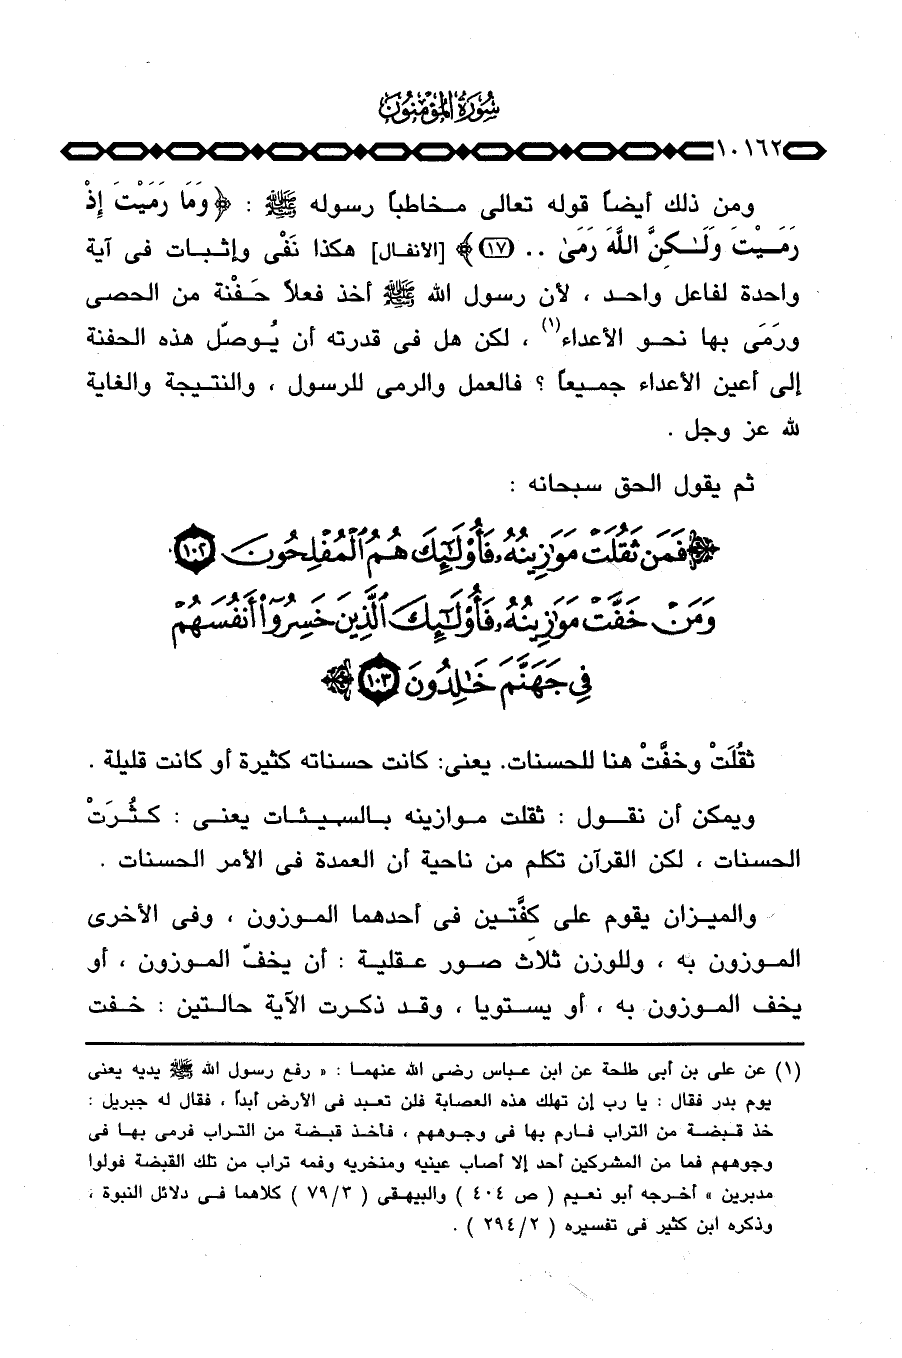 سُورَةُ المُؤْمِنُونَ
١٠١٦٢
ومن ذلك أيضاً قوله تعالى مخاطباً رسوله ﷺ : ﴿ وَمَا رَمَيْتَ إِذْ
رَمَيْتَ وَلَـٰكِنَّ اللَّهَ رَمَىٰ .. (١٧) ﴾ [الأنفال] هكذا نَفْى وإثبات فى آية
واحدة لفاعل واحد ، لأن رسول الله ﷺ أخذ فعلاً حَفْنة من الحصى
ورمَى بها نحو الأعداء(١) ، لكن هل فى قدرته أن يُوصلّ هذه الحفنة
إلى أعين الأعداء جميعاً ؟ فالعمل والرمى للرسول ، والنتيجة والغاية
لله عز وجل .
ثم يقول الحق سبحانه :
﴿ فَمَن ثَقُلَتْ مَوَٰزِينُهُۥ فَأُوْلَـٰٓئِكَ هُمُ ٱلْمُفْلِحُونَ (١٠٢)
وَمَنْ خَفَّتْ مَوَٰزِينُهُۥ فَأُوْلَـٰٓئِكَ ٱلَّذِينَ خَسِرُوٓاْ أَنفُسَهُمْ
فِى جَهَنَّمَ خَـٰلِدُونَ (١٠٣) ﴾
ثقُلَتْ وخفَّتْ هنا للحسنات. يعنى: كانت حسناته كثيرة أو كانت قليلة .
ويمكن أن نقول : ثقلت موازينه بالسيئات يعنى : كثُرَتْ
الحسنات ، لكن القرآن تكلم من ناحية أن العمدة فى الأمر الحسنات .
والميزان يقوم على كفَّتين فى أحدهما الموزون ، وفى الأخرى
الموزون به ، وللوزن ثلاث صور عقلية : أن يخفّ الموزون ، أو
يخف الموزون به ، أو يستويا ، وقد ذكرت الآية حالتين : خفت
(١) عن على بن أبى طلحة عن ابن عباس رضى الله عنهما : « رفع رسول الله ﷺ يديه يعنى
يوم بدر فقال : يا رب إن تهلك هذه العصابة فلن تعبد فى الأرض أبداً ، فقال له جبريل :
خذ قبضة من التراب فارم بها فى وجوههم ، فأخذ قبضة من التراب فرمى بها فى
وجوههم فما من المشركين أحد إلا أصاب عينيه ومنخريه وفمه تراب من تلك القبضة فولوا
مدبرين » أخرجه أبو نعيم ( ص ٤٠٤ ) والبيهقى ( ٧٩/٣ ) كلاهما فى دلائل النبوة ،
وذكره ابن كثير فى تفسيره ( ٢٩٤/٢ ) .